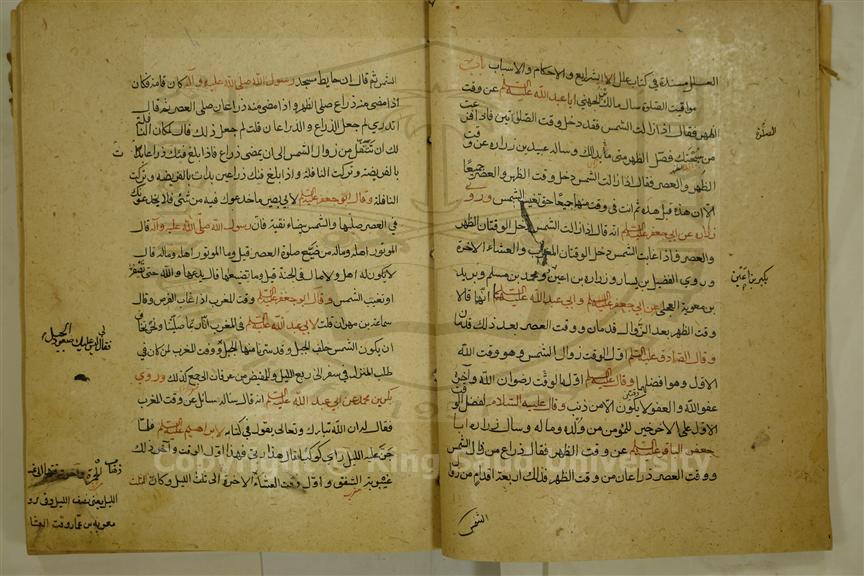 العلل مسندة في كتاب علل الشرايع والاحكام والاسباب باب
مواقيت الصلوة سال مالك الجهني ابا عبد الله عليه السلام عن وقت
الظهر فقال اذا زالت الشمس فقد دخل وقت الصلاتين فاذا فرغت
من سبحتك فصل الظهر متى ما بدا لك وساله عبيد بن زراره عن وقت
الظهر والعصر فقال اذا زالت الشمس دخل وقت الظهر والعصر جميعا
الا ان هذه قبل هذه ثم انت في وقت منهما جميعا حتى تغيب الشمس وروى
زراره عن ابي جعفر عليه السلام انه قال اذا زالت الشمس دخل الوقتان الظهر
والعصر فاذا غابت الشمس دخل الوقتان المغرب والعشاء الاخرة
وروى الفضيل بن يسار وزراره بن اعين ومحمد بن مسلم وبريد
بن معوية العجلي عن ابي جعفر عليه السلام وابي عبد الله عليه السلام انهما قالا
وقت الظهر بعد الزوال قدمان ووقت العصر بعد ذلك قدمان
وقال الصادق عليه السلام اول الوقت زوال الشمس وهو وقت الله
الاول وهو افضلهما وقال عليه السلام اوله الوقت رضوان الله واخره
عفو الله والعفو لا يكون الا من ذنب وقال عليه السلام لفضل الوقت
الاول على الاخر خير للمؤمن من ولده وماله وسال زراره ابا
جعفر الباقر عليه السلام عن وقت الظهر فقال ذراع من زوال الشمس
ووقت العصر ذراعان من وقت الظهر فذلك اربعة اقدام من زوال
الشمس
الشمس ثم قال ان حايط مسجد رسول الله صلى الله عليه وآله كان قامة فكان
اذا مضى منه ذراع صلى الظهر واذا مضى منه ذراعان صلى العصر ثم قال
اتدري لم جعل الذراع والذراعان قلت لم جعل ذلك قال لمكان النافلة
لك ان تتنفل من زوال الشمس الى ان يمضى ذراع فاذا بلغ فيئك ذراعا بدات
بالفريضة وتركت النافلة واذا بلغ فيئك ذراعين بدات بالفريضة وتركت
النافلة وقال ابو جعفر عليه السلام لابي بصير ما خدعوك فيه من شئ فلا يخدعونك
في العصر صلها والشمس بيضاء نقية فان رسول الله صلى الله عليه وآله قال
الموتور اهله وماله من ضيع صلوة العصر قيل وما الموتور اهله وماله قال
لا يكون له اهل ولا مال في الجنة قيل وما تضييعها قال يدعها والله حتى تصفر
او تغيب الشمس وقال ابو جعفر عليه السلام وقت المغرب اذا غاب القرص وقال
سماعة بن مهران قلت لابي عبد الله عليه السلام في المغرب انا ربما صلينا ونحن نخاف
ان يكون الشمس خلف الجبل وقد سترنا منها الجبل ووقت المغرب لمن كان في
طلب المنزل في سفر الى ربع الليل والمفيض من عرفات الى جمع كذلك وروى
بكر بن محمد عن ابي عبد الله عليه السلام انه قال ساله سائل عن وقت المغرب
فقال ان الله تبارك وتعالى يقول في كتابه لابراهيم عليه السلام فلما
جن عليه الليل راى كوكبا قال هذا ربي فهذا اول الوقت واخر ذلك
غيبوبة الشفق واول وقت العشاء الاخرة
الى ثلث الليل وكان الثلث
فقال ليس عليك صعود الجبل
الليل يعني نصف الليل وفي رو
معوية بن عمار وقت العشا
Copyright © King Saud University